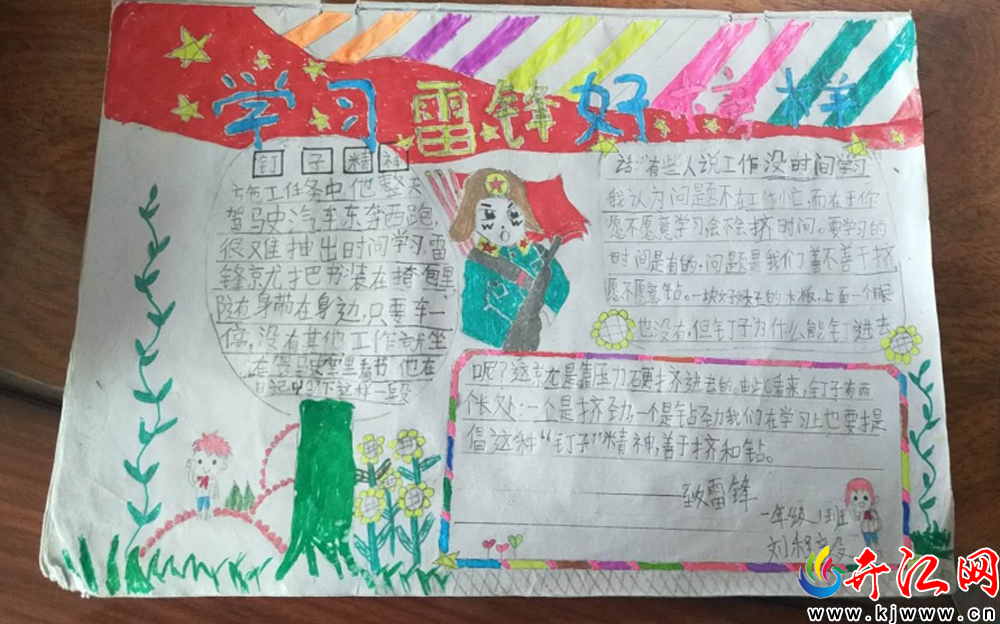 学习雷锋好榜样
钉子精神
施工任务中,他整天
驾驶汽车东奔西跑,
很难抽出时间学习,雷
锋就把书装在挎包里,
随身带在身边,只要车一
停,没有其他工作就坐
在驾驶室里看书。他在
日记中写下这样一段
话:“有些人说工作没时间学习
我认为问题不在工作忙,而在于你
愿不愿意学习,会不会挤时间。要学习的
时间是有的,问题是我们善不善于挤,
愿不愿意钻。一块好好的木板,上面一个眼
也没有,但钉子为什么能钉进去
呢?这就是靠压力硬挤进去的。由此看来,钉子有两
个长处:一个是挤劲,一个是钻劲我们在学习上也要提
倡这种“钉子”精神,善于挤和钻。
——致雷锋
一年级1班
刘
开江网
www.kjwww.cn